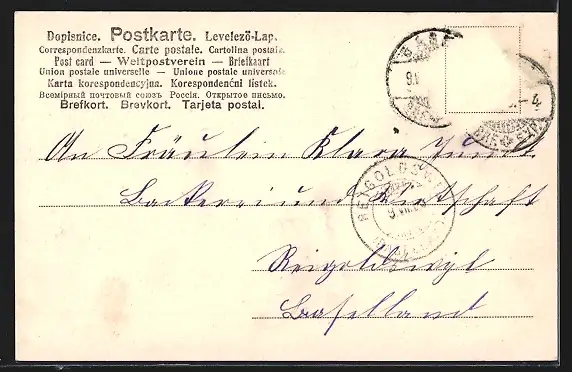 Dopisnice. Postkarte. Levelező-Lap.
Correspondenzkarte. Carte postale. Cartolina postale.
Post card — Weltpostverein — Briefkaart
Union postale universelle — Unione postale universale
Karta korespondencyjna. Korespondenční lístek.
Всемірный почтовый союзъ. Россія. Открытое письмо.
Brefkort. Brevkort. Tarjeta postal.
An Fräulein Klara
Bäckerei und Wirtschaft
Reigoldswyl
Baselland
REIGOLDSWIL